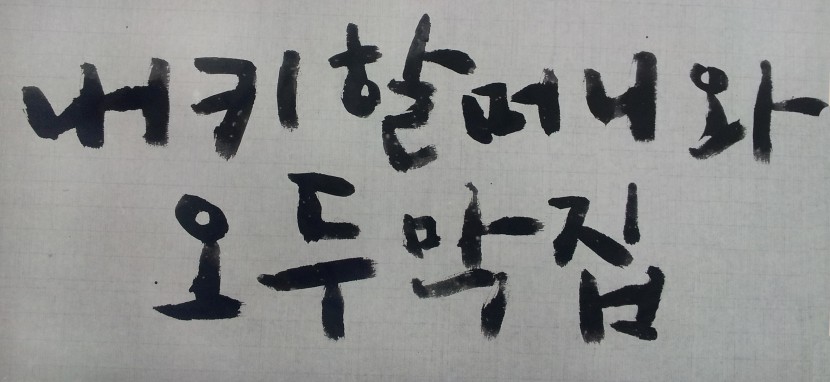 내키할머니와
오두막집